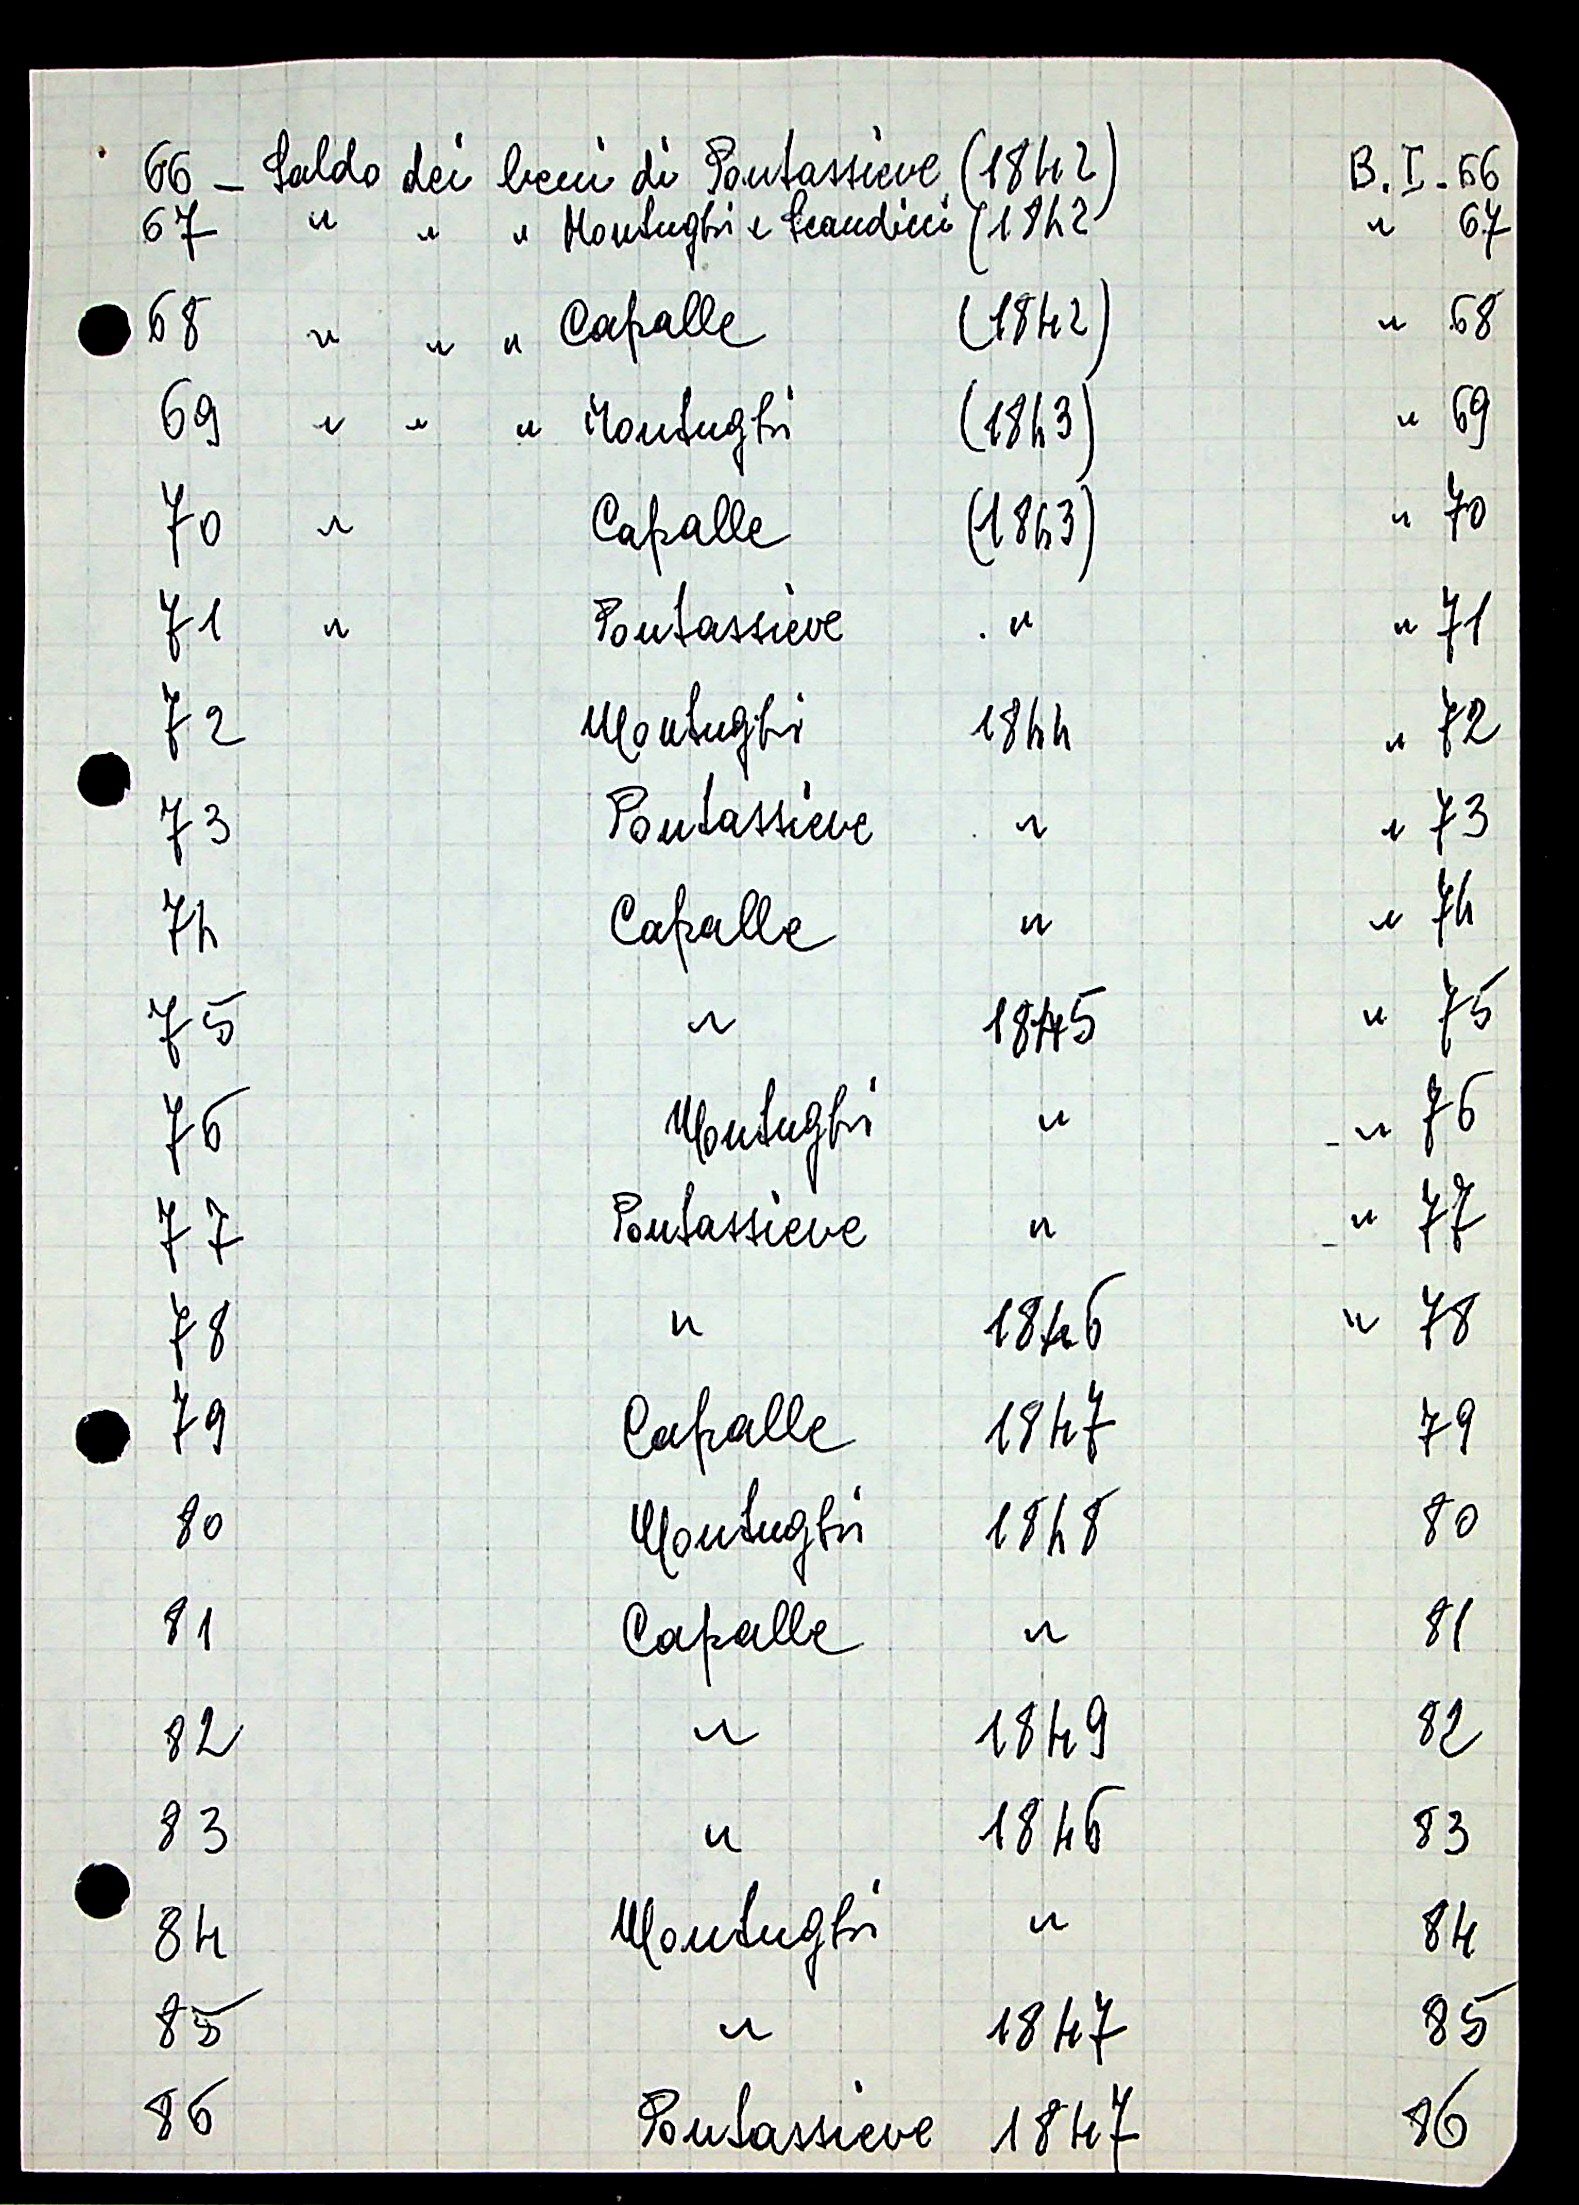 66 - Saldo dei beni di Pontassieve (1842) B.I.-66
67 " " " Montughi e Scandicci (1842 " 67
68 " " " Capalle (1842) " 68
69 " " " Montughi (1843) " 69
70 " Capalle (1843) " 70
71 " Pontassieve " " 71
72 Montughi 1844 " 72
73 Pontassieve " " 73
74 Capalle " " 74
75 " 1845 " 75
76 Montughi " - " 76
77 Pontassieve " - " 77
78 " 1846 " 78
79 Capalle 1847 79
80 Montughi 1848 80
81 Capalle " 81
82 " 1849 82
83 " 1846 83
84 Montughi " 84
85 " 1847 85
86 Pontassieve 1847 86